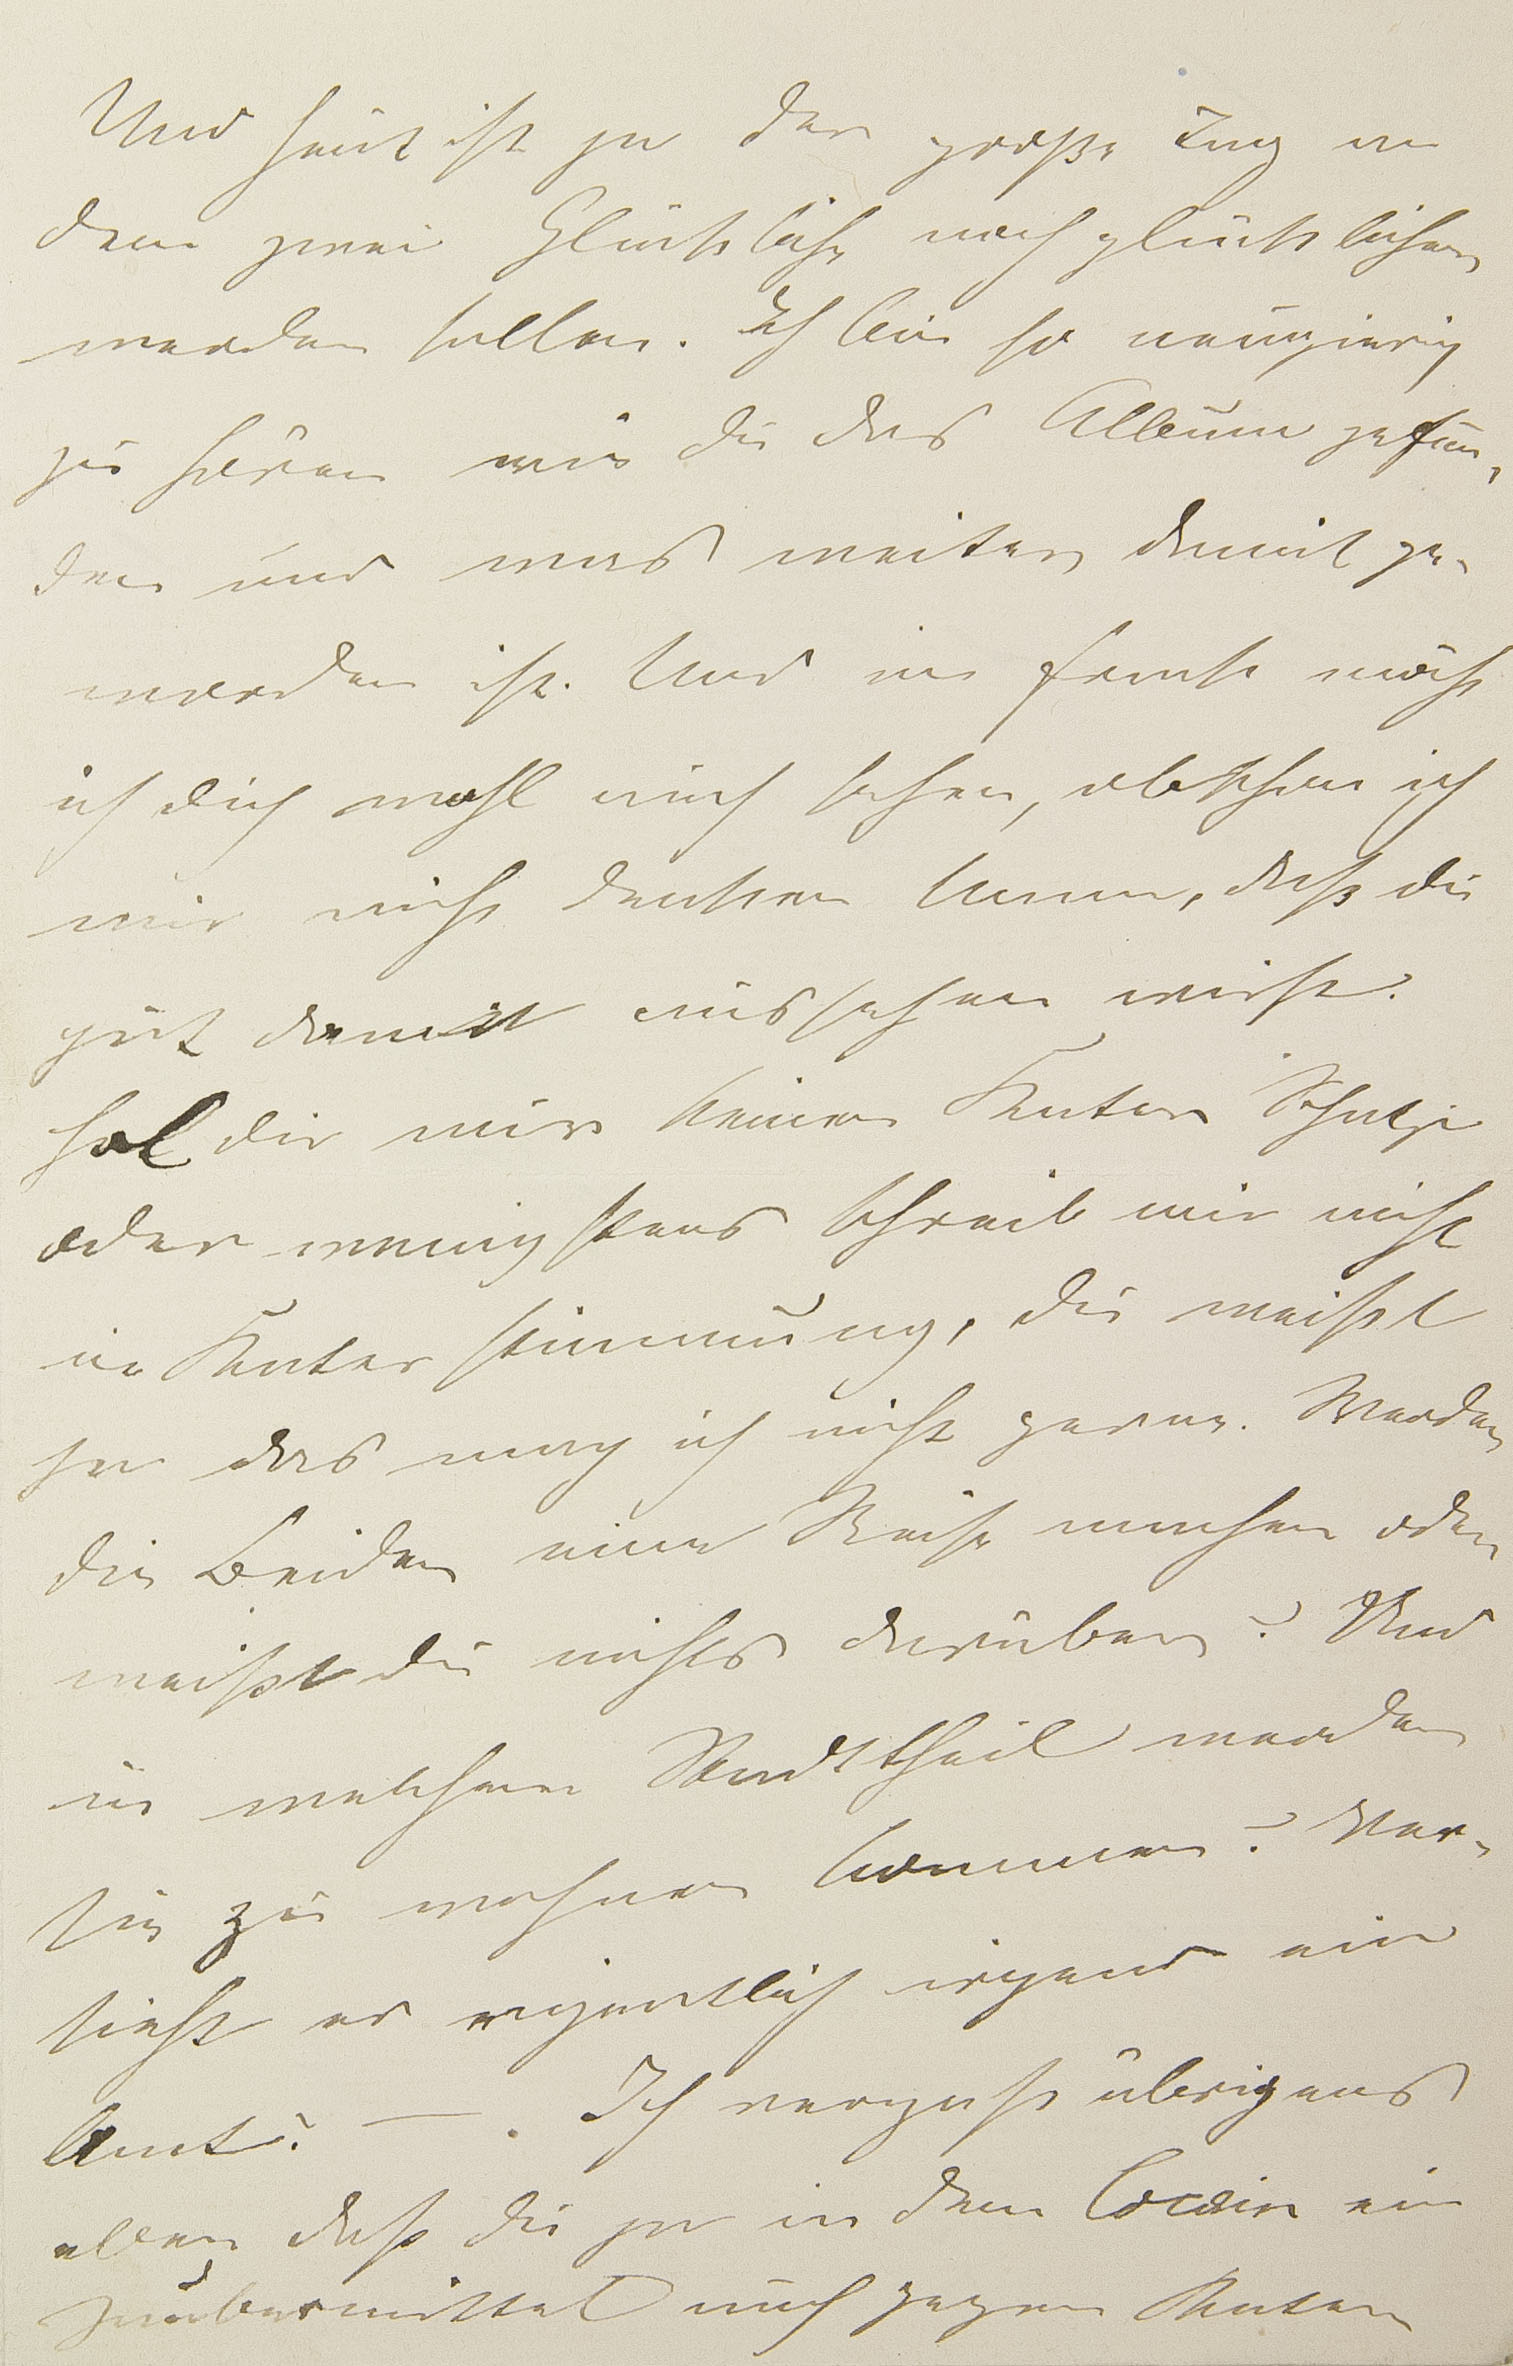 Und heut ist ja der große Tag an
dem zwei Glückliche noch glücklicher
werden sollen. Ich bin so neugierig
zu hören wie du das Album gefun-
den und was weiter damit ge-
worden ist. Und im Frack möcht
ich dich wohl auch sehen, obschon ich
mir nicht denken kann, daß du
gut damit aussehen wirst.
hol dir nur keinen Kater Schatzi
oder wenigstens schreib mir nicht
in Katerstimmung, du weißt
ja das mag ich nicht gerne. Werden
die Beiden eine Reise machen oder
weißt du nichts darüber? Und
in welchem Stadttheil werden
sie zu wohnen kommen? Ver-
sieht er eigentlich irgend ein
Amt? — . Ich vergesse übrigens
eben daß du ja in dem Cocain ein
Zaubermittel auch gegen Kater